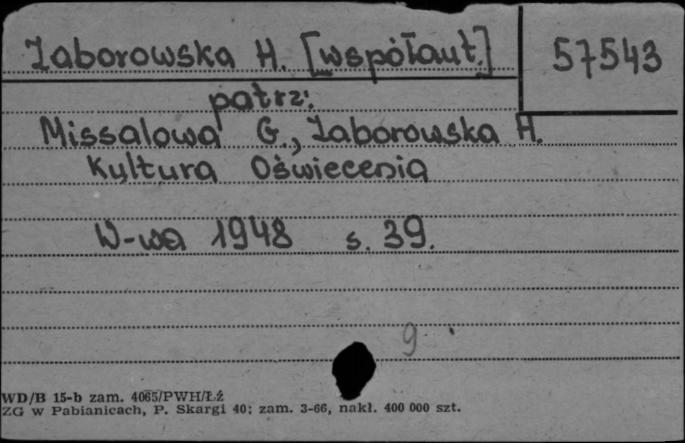 Zaborowska H. [współaut.]
57543
patrz:
Missalowa G., Zaborowska H.
Kultura Oświecenia
W-wa 1948 s. 39.
9
WD/B 15-b zam. 4065/PWH/Łź
ZG w Pabianicach, P. Skargi 40; zam. 3-66, nakł. 400 000 szt.